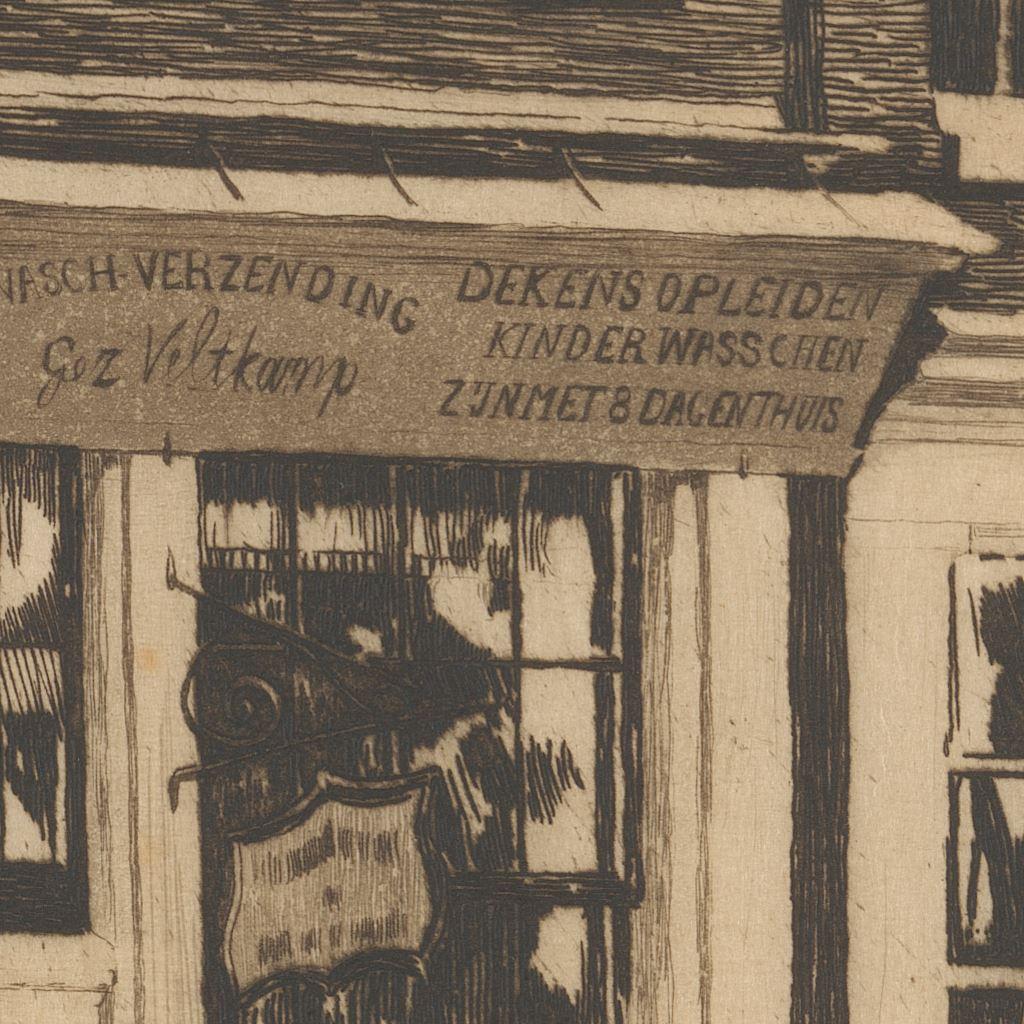 WASCH-VERZENDING
Gez Veltkamp
DEKENS OPLEIDEN
KINDER WASSCHEN
ZIJN MET 8 DAGEN THUIS